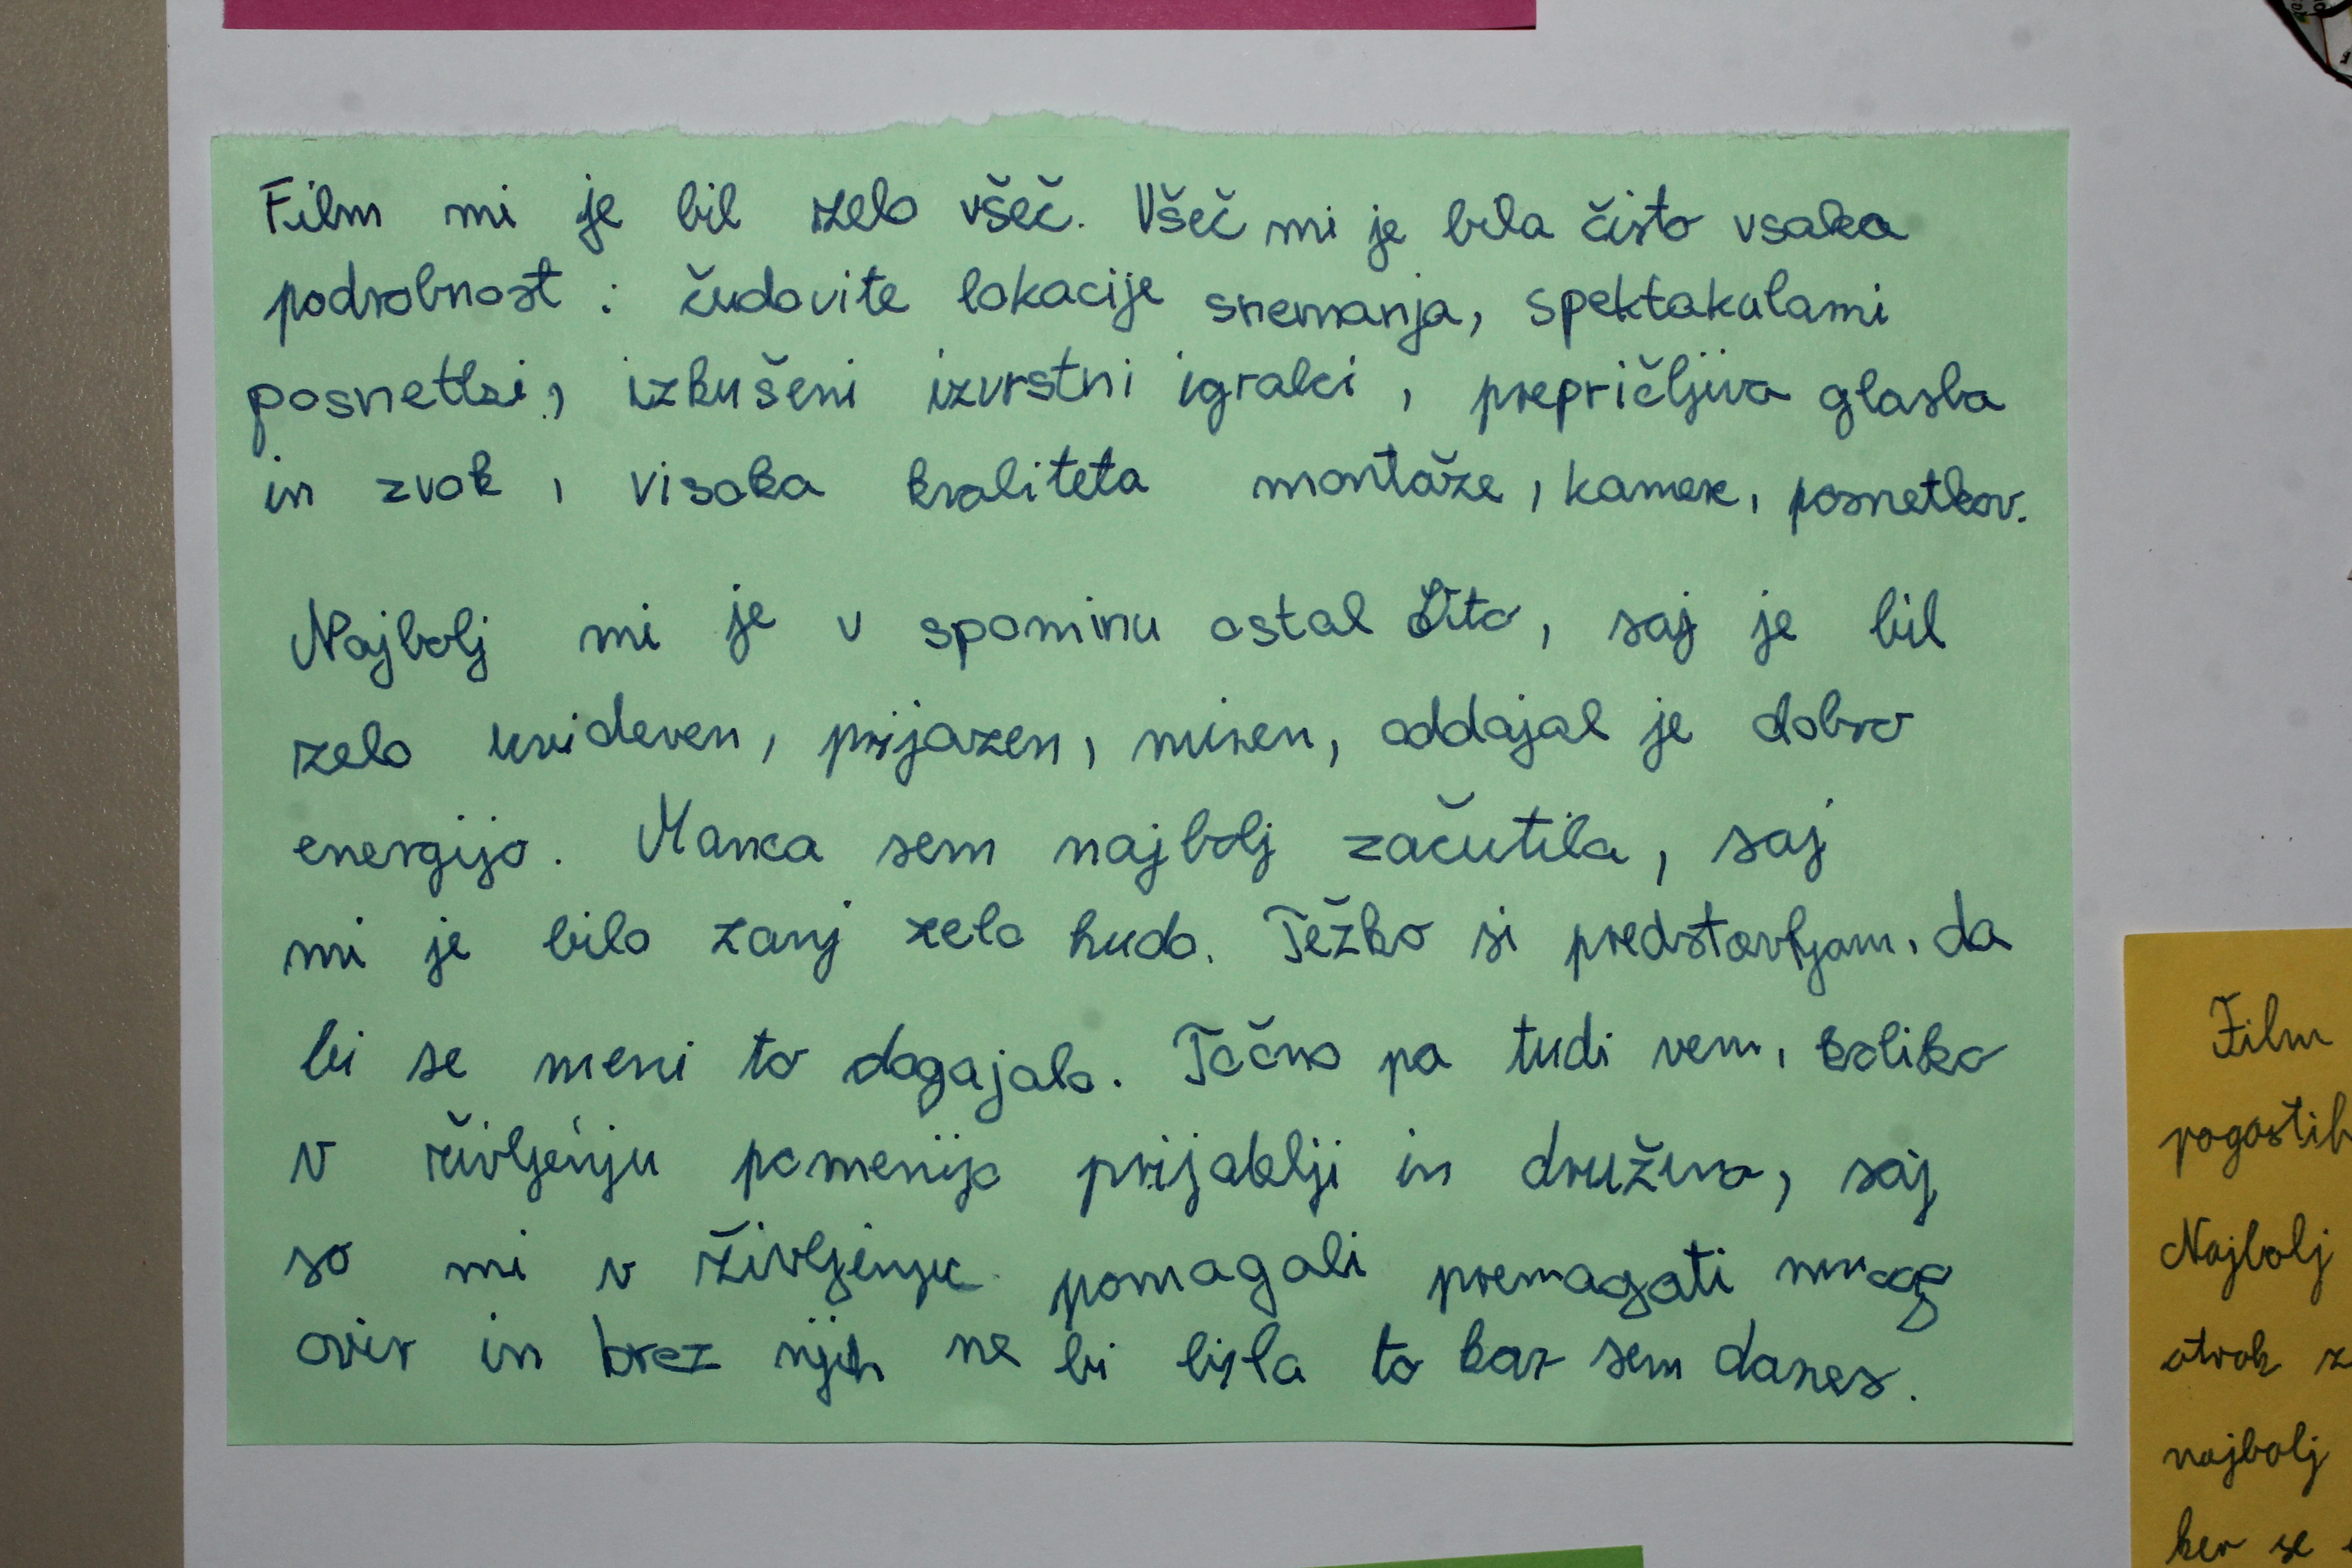 Film mi je bil zelo všeč. Všeč mi je bila čisto vsaka
podrobnost : čudovite lokacije snemanja, spektakularni
posnetki, izkušeni izvrstni igralci, prepričljiva glasba
in zvok, visoka kvaliteta montaže, kamere, posnetkov.
Najbolj mi je v spominu ostal Tito, saj je bil
zelo uvideven, prijazen, miren, oddajal je dobro
energijo. Manca sem najbolj začutila, saj
mi je bilo zanj zelo hudo. Težko si predstavljam, da
bi se meni to dogajalo. Točno pa tudi vem, koliko
v življenju pomenijo prijatelji in družina, saj
so mi v življenju pomagali premagati mnogo
ovir in brez njih ne bi bila to kar sem danes.
Film
Najbolj
otrok
najbolj
ker se